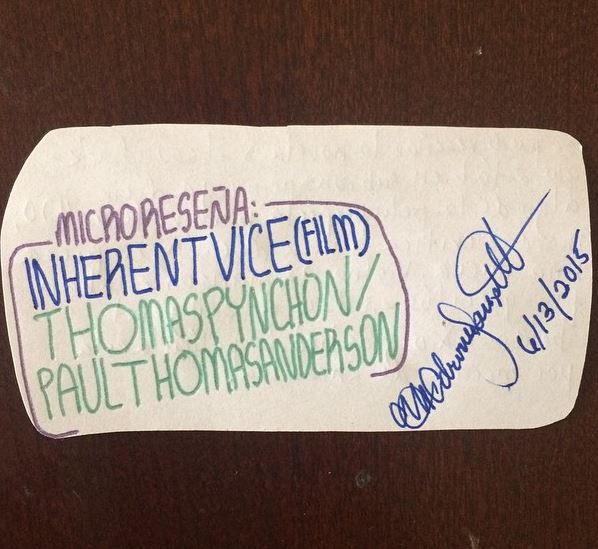 MICRORESEÑA:
INHERENT VICE (FILM)
THOMAS PYNCHON/
PAUL THOMAS ANDERSON
6/13/2015